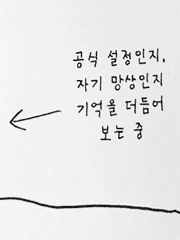 공식 설정인지,
자기 망상인지
기억을 더듬어
보는 중